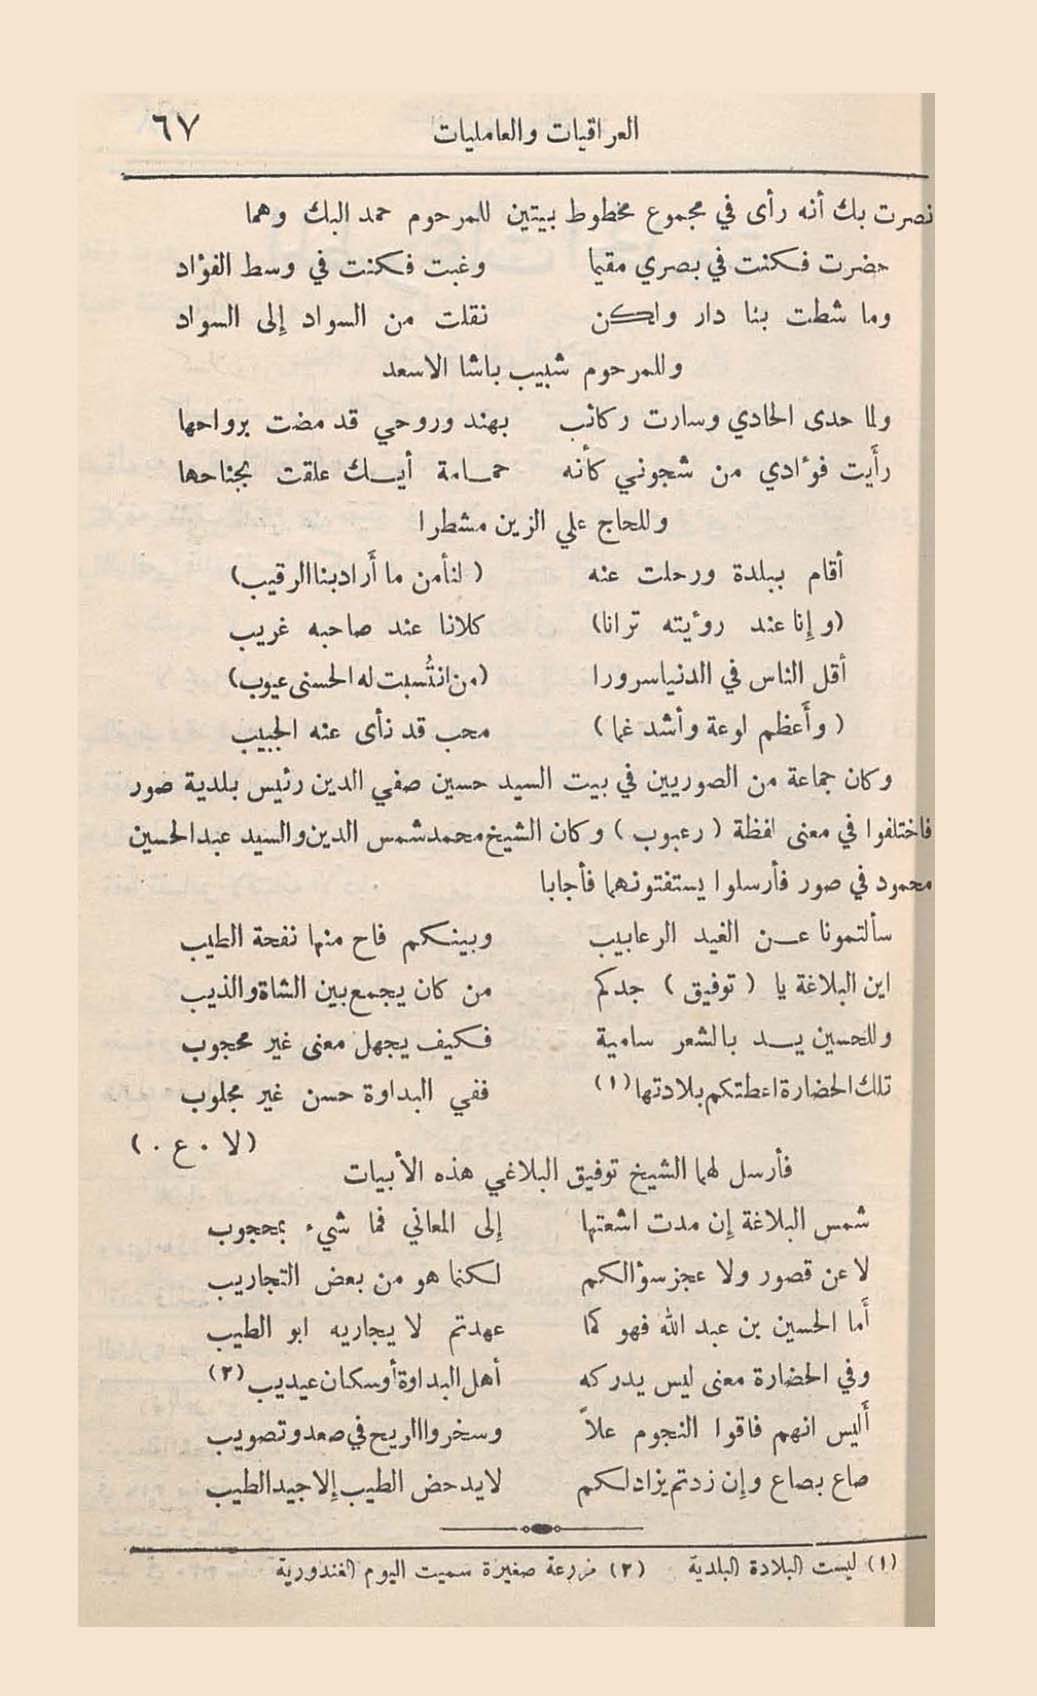 العراقيات والعامليات ٦٧
نصرت بك أنه رأى في مجموع مخطوط بيتين للمرحوم حمد البك وهما
حضرت فكنت في بصري مقيما وغبت فكنت في وسط الفؤاد
وما شطت بنا دار ولكن نقلت من السواد إلى السواد
وللمرحوم شبيب باشا الاسعد
ولما حدى الحادي وسارت ركائب بهند وروحي قد مضت برواحها
رأَيت فوءادي من شجوني كأنه حمامة أيك علقت بجناحها
وللحاج علي الزين مشطرا
أقام ببلدة ورحلت عنه (لنأمن ما أَراد بنا الرقيب)
(وإنا عند روءيته ترانا) كلانا عند صاحبه غريب
أقل الناس في الدنيا سرورا (من انتُسبت له الحسنى عيوب)
(وأَعظم لوعة وأشد غما) محب قد نأى عنه الحبيب
وكان جماعة من الصوريين في بيت السيد حسين صفي الدين رئيس بلدية صور
فاختلفوا في معنى لفظة (رعبوب) وكان الشيخ محمد شمس الدين والسيد عبد الحسين
محمود في صور فأرسلوا يستفتونهما فأجابا
سألتمونا عن الغيد الرعابيب وبينكم فاح منها نفحة الطيب
اين البلاغة يا (توفيق) جدكم من كان يجمع بين الشاة والذيب
وللحسين يد بالشعر سامية فكيف يجهل معنى غير محجوب
تلك الحضارة اعطتكم بلادتها (١) ففي البداوة حسن غير مجلوب
(لا . ع .)
فأرسل لهما الشيخ توفيق البلاغي هذه الأبيات
شمس البلاغة إن مدت اشعتها إلى المعاني فما شيء بمحجوب
لا عن قصور ولا عجز سؤالكم لكنما هو من بعض التجاريب
أَما الحسين بن عبد الله فهو كما عهدتم لا يجاريه ابو الطيب
وفي الحضارة معنى ليس يدركه أهل البداوة أو سكان عيديب (٢)
أَليس انهم فاقوا النجوم علاً وسخروا الريح في صعد وتصويب
صاع بصاع وإن زدتم يزاد لكم لا يدحض الطيب إلا جيد الطيب
(١) ليست البلادة البلدية (٢) مزرعة صغيرة سميت اليوم الغندورية